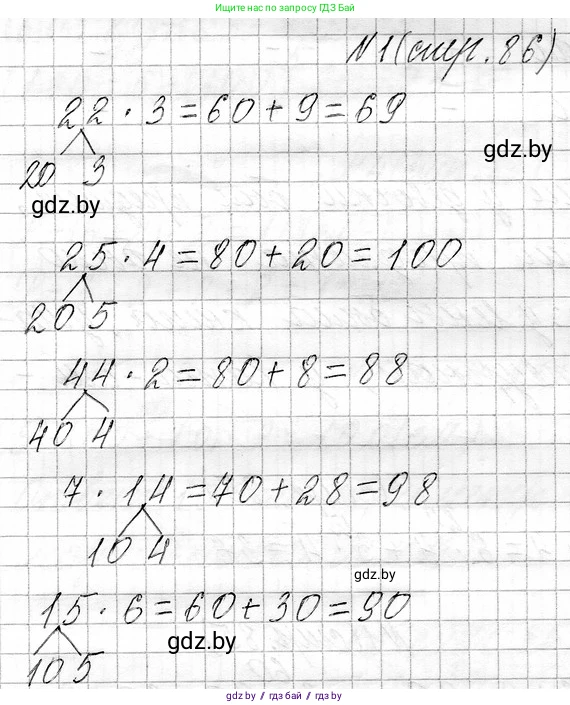 Ищите нас по запросу ГДЗ Бай
N 1 (стр. 86)
22 · 3 = 60 + 9 = 69
20 3
gdz.by
gdz.by
25 · 4 = 80 + 20 = 100
20 5
44 · 2 = 80 + 8 = 88
40 4
7 · 14 = 70 + 28 = 98
10 4
gdz.by
15 · 6 = 60 + 30 = 90
gdz.by
10 5
gdz.by / гдз бай / гдз by